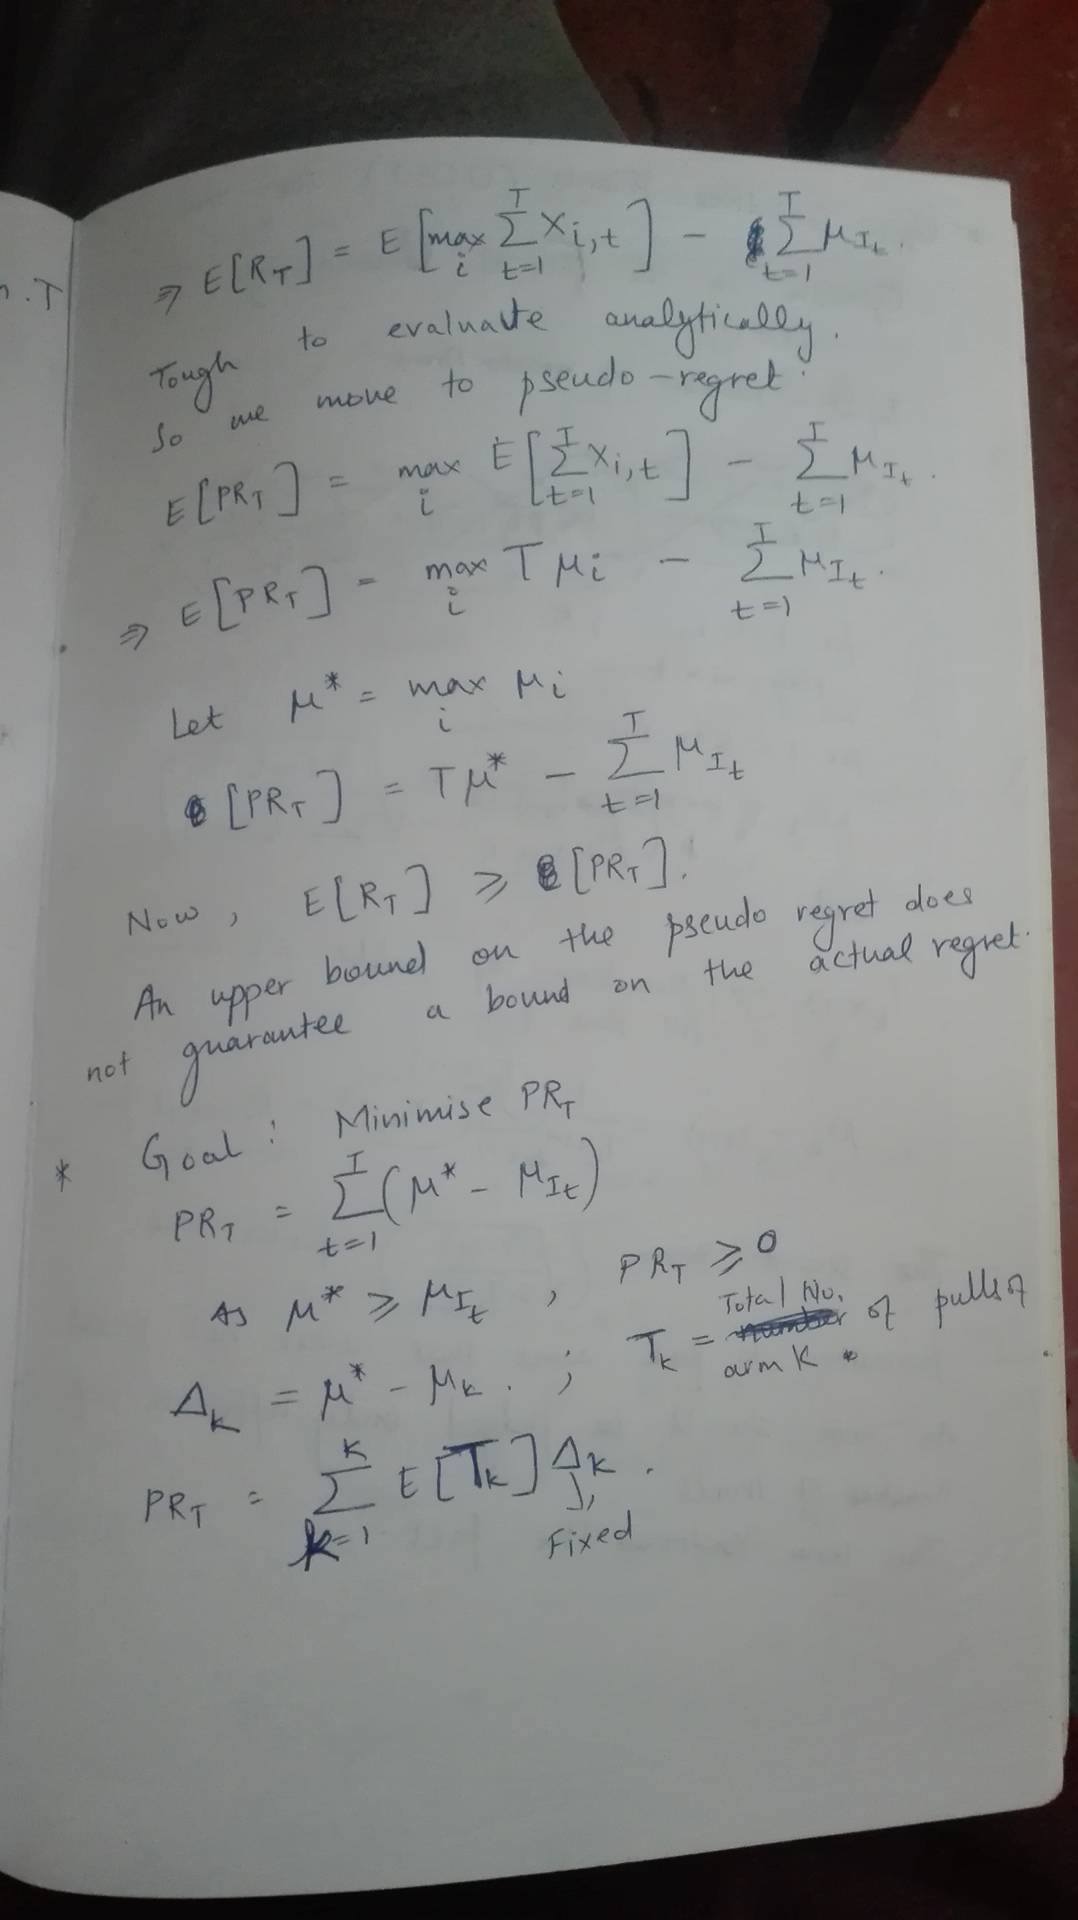 n.T
⇒ E[R_T] = E[max_i Σ_{t=1}^{T} X_{i,t}] - Σ_{t=1}^{T} μ_{I_t}.
Tough to evaluate analytically.
So we move to pseudo-regret.
E[PR_T] = max_i E[Σ_{t=1}^{T} X_{i,t}] - Σ_{t=1}^{T} μ_{I_t}.
⇒ E[PR_T] = max_i T μ_i - Σ_{t=1}^{T} μ_{I_t}.
Let μ* = max_i μ_i
[PR_T] = Tμ* - Σ_{t=1}^{T} μ_{I_t}
Now, E[R_T] ⩾ [PR_T].
An upper bound on the pseudo regret does
not guarantee a bound on the actual regret.
* Goal: Minimise PR_T
PR_T = Σ_{t=1}^{T} (μ* - μ_{I_t})
As μ* ⩾ μ_{I_t}, PR_T ⩾ 0
Δ_k = μ* - μ_k. ; T_k = Total No. of pulls of
arm K.
PR_T = Σ_{k=1}^{K} E[T_k] Δ_k.
↓
Fixed